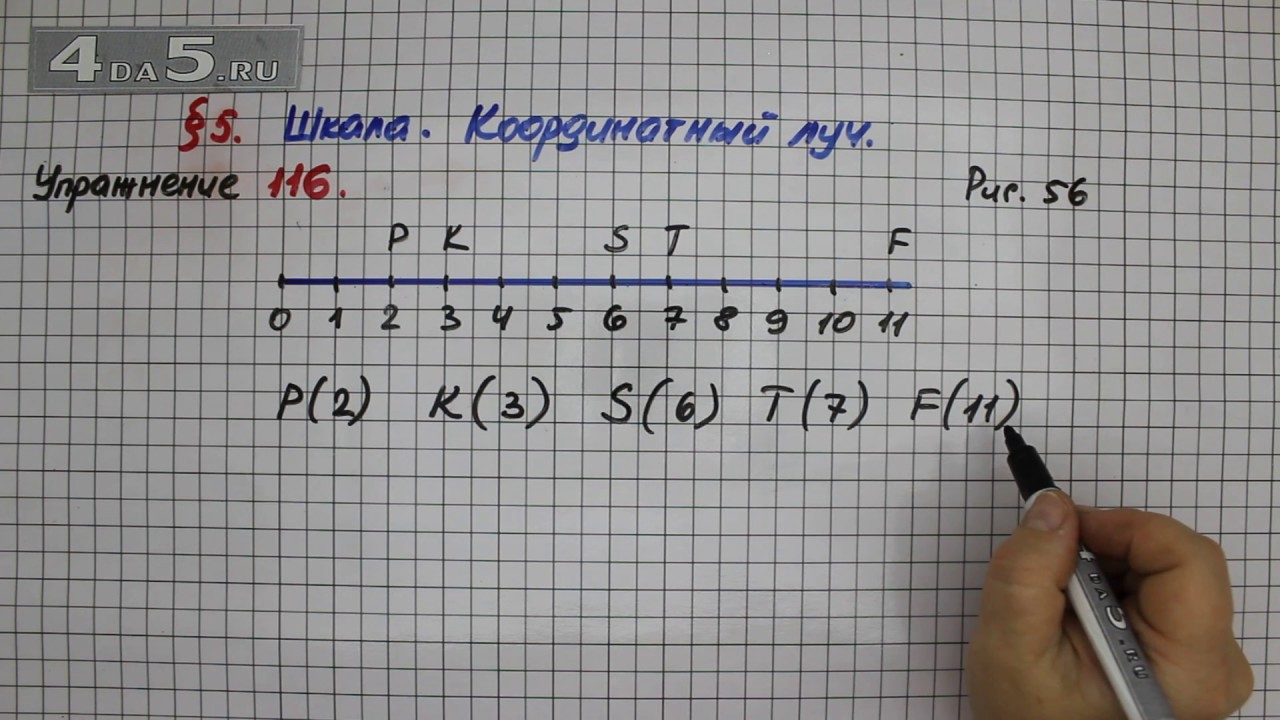 4DA5.RU
§5. Шкала. Координатный луч.
Упражнение 116.
Рис. 56
P K S T F
0 1 2 3 4 5 6 7 8 9 10 11
P(2) K(3) S(6) T(7) F(11)
4DA5.RU